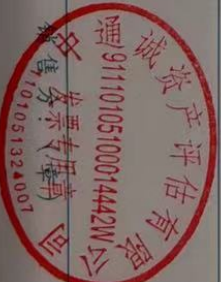 中通诚资产评估有限公司
91110105100014442W
发票专用章
销售方:(章)
1101051324007